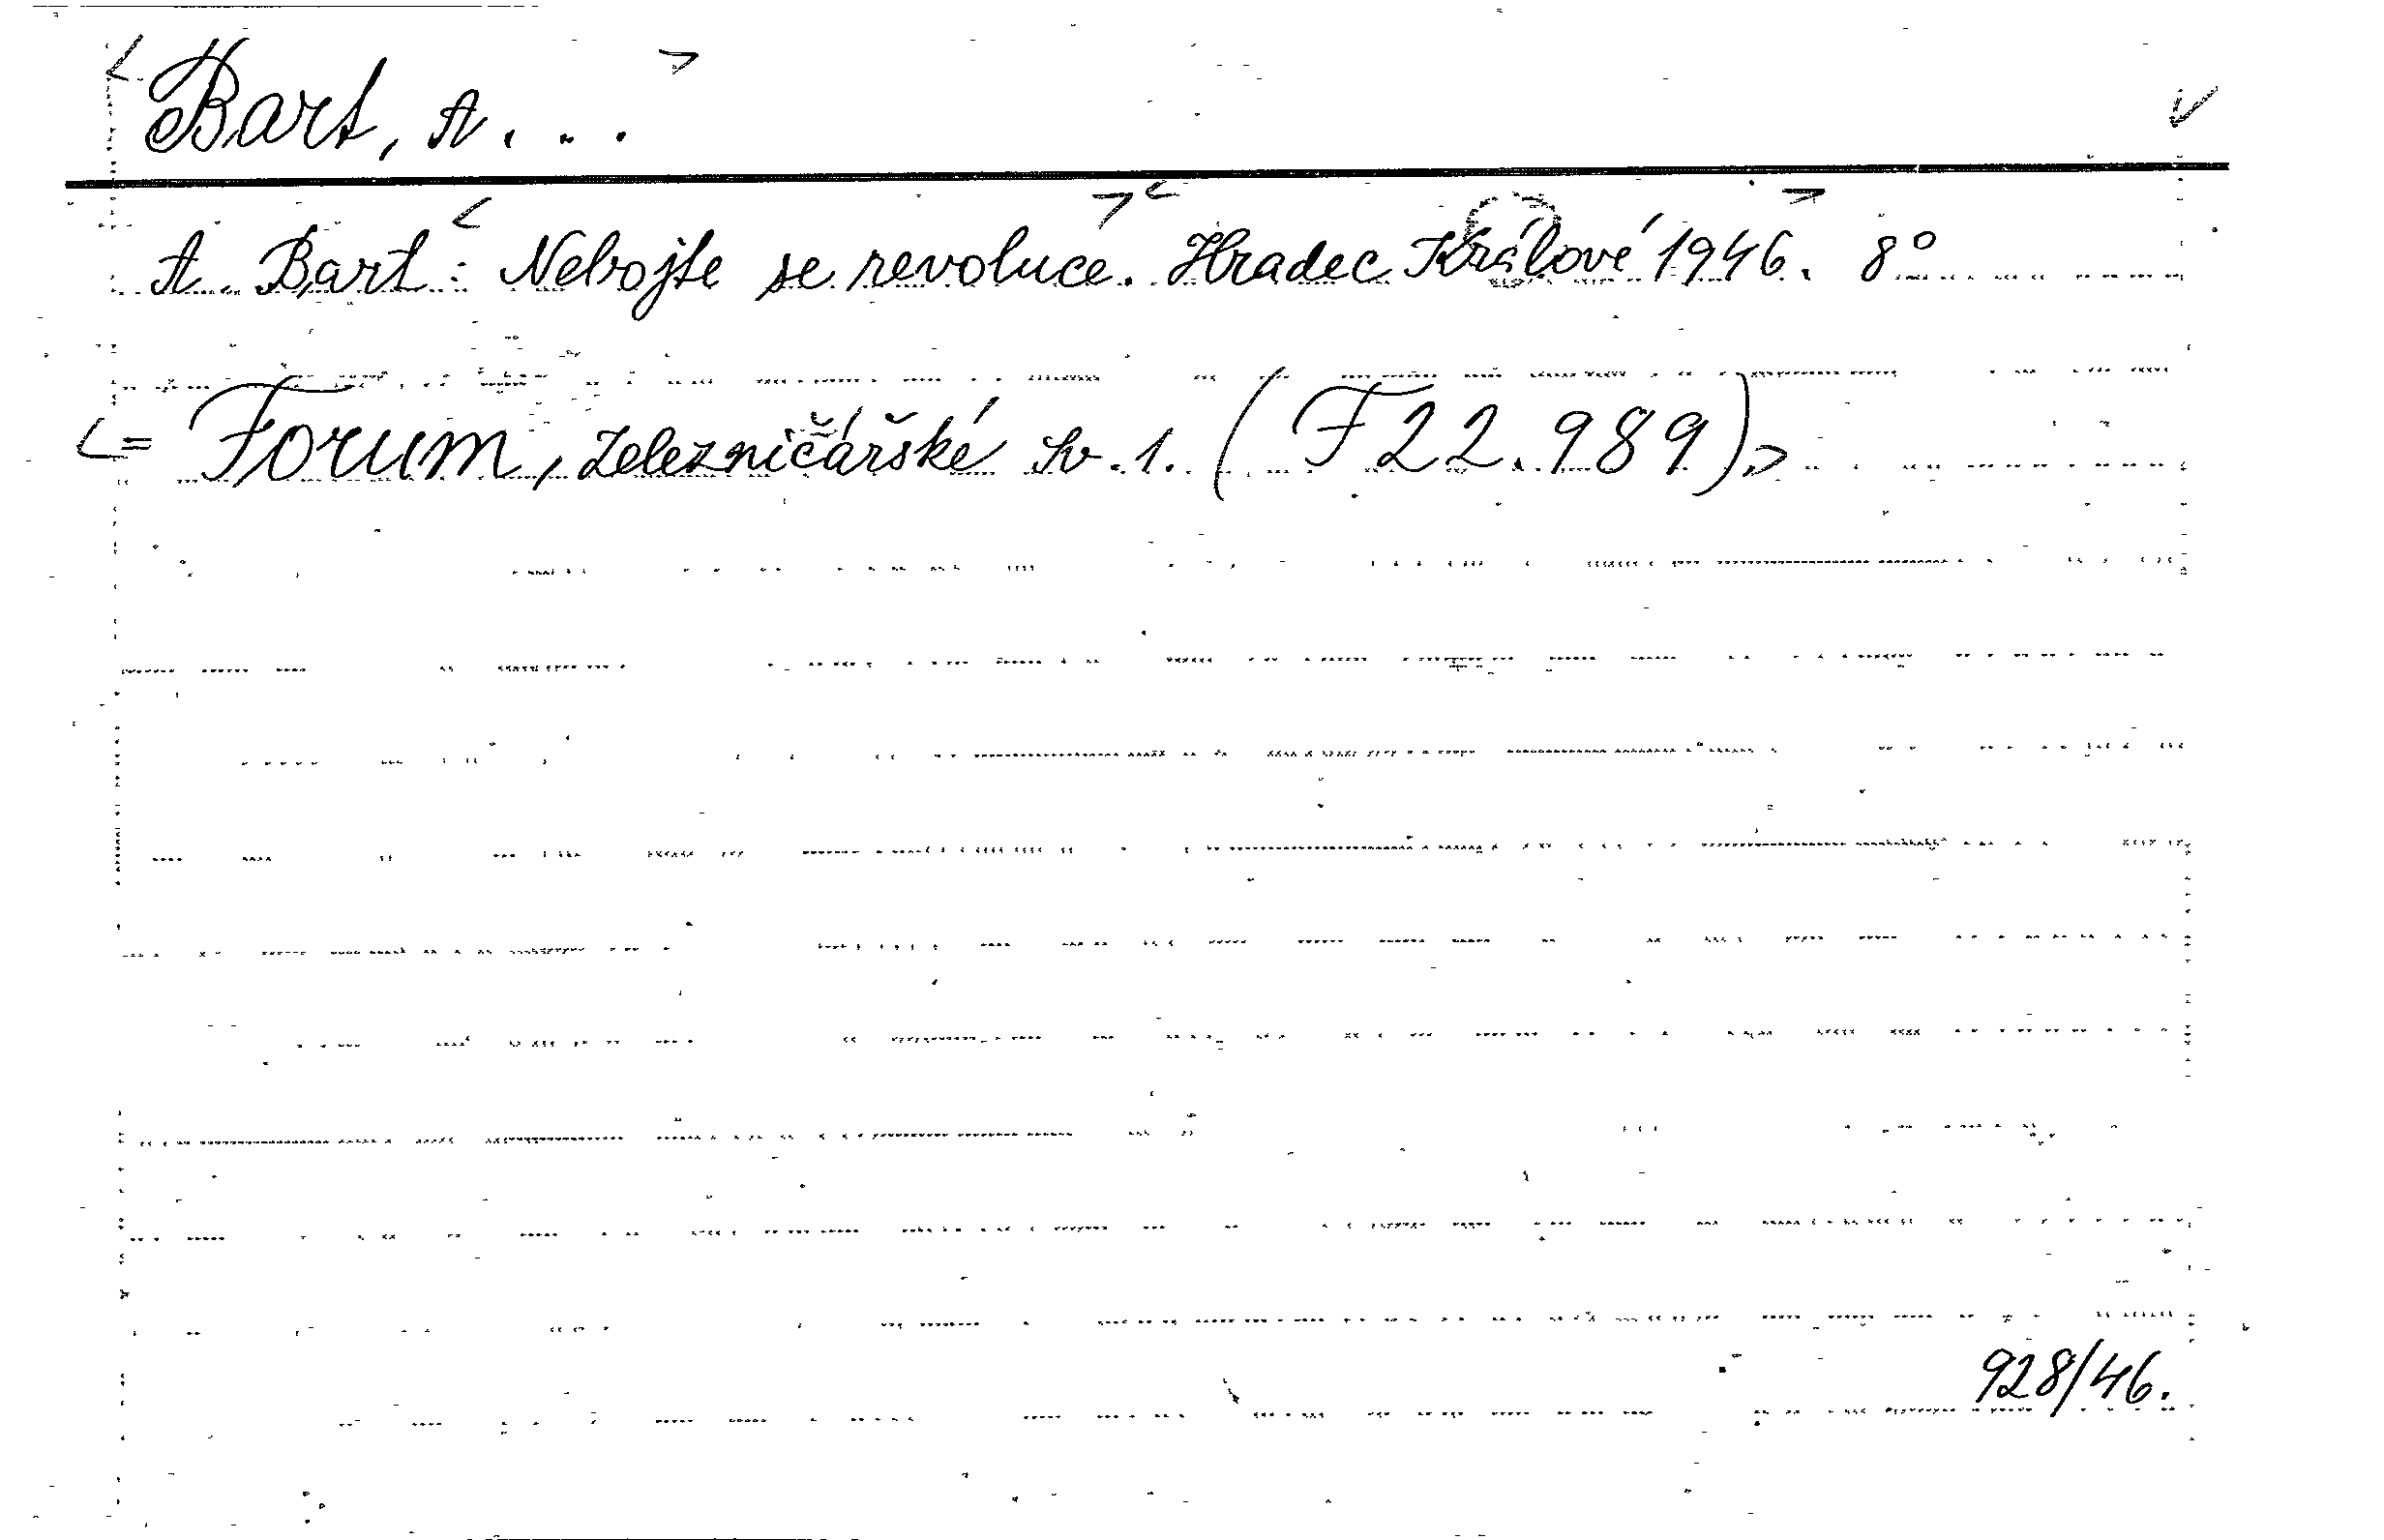 < Bart, A. . . >
A. Bart: < Nebojte se revoluce. > < Hradec Králové 1946. > 8°
< = Forum, železničářské Sv. 1. (F 22.989) >
928/46.